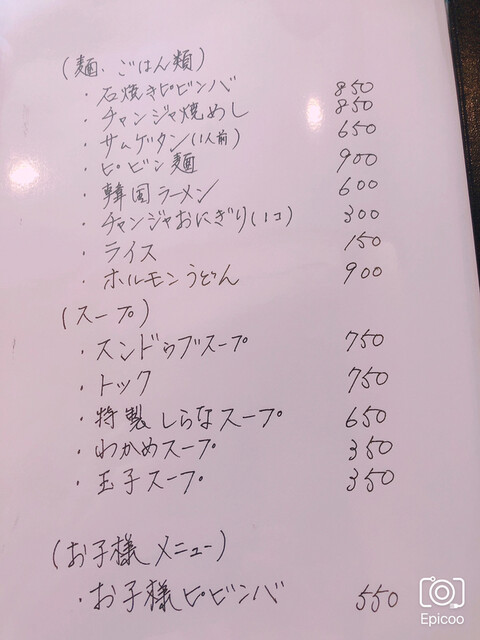 (麺、ごはん類)
・石焼きピビンバ 850
・チャンジャ焼めし 850
・サムゲタン(1人前) 650
・ピビン麺 900
・韓国ラーメン 600
・チャンジャおにぎり(1コ) 300
・ライス 150
・ホルモンうどん 900
(スープ)
・スンドゥブスープ 750
・トック 750
・特製しらなスープ 650
・わかめスープ 350
・玉子スープ 350
(お子様メニュー)
・お子様ピビンバ 550
Epicoo